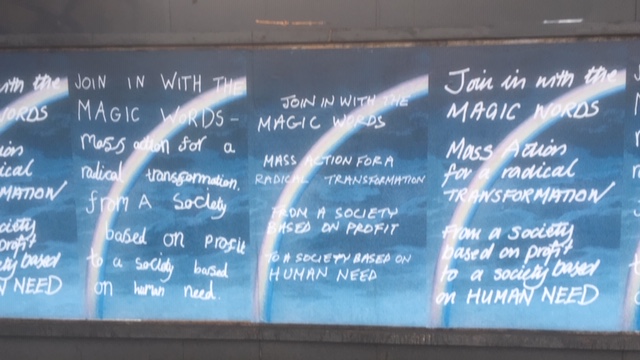 with the
ORDS
ion
ical
MATION
ciety
profit
ety based
N NEED
JOIN IN WITH THE
MAGIC WORDS -
Mass action for a
radical transformation.
from A Society
based on profit
to a society based
on human need.
JOIN IN WITH THE
MAGIC WORDS
MASS ACTION FOR A
RADICAL TRANSFORMATION
FROM A SOCIETY
BASED ON PROFIT
TO A SOCIETY BASED ON
HUMAN NEED
Join in with the
MAGIC WORDS
Mass Action
for a radical
TRANSFORMATION
From a Society
based on profit
to a society based
on HUMAN NEED